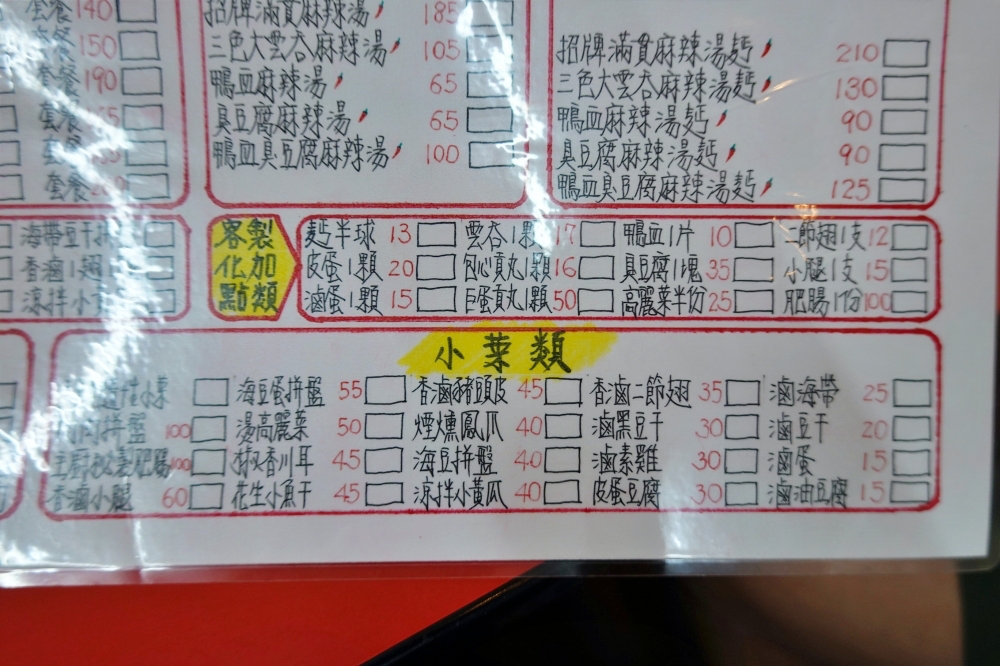 套餐 140
套餐 150
套餐 190
套餐
套餐
招牌滿貫麻辣湯 185
三色大雲吞麻辣湯 105
鴨血麻辣湯 65
臭豆腐麻辣湯 65
鴨血臭豆腐麻辣湯 100
招牌滿貫麻辣湯麵 210
三色大雲吞麻辣湯麵 130
鴨血麻辣湯麵 90
臭豆腐麻辣湯麵 90
鴨血臭豆腐麻辣湯麵 125
海帶豆干
香滷1翅
涼拌小
客製
化加
點類
麵半球 13 雲吞1顆 17 鴨血1片 10 二節翅1支 12
皮蛋1顆 20 包心貢丸1顆 16 臭豆腐1塊 35 小腿1支 15
滷蛋1顆 15 巨蛋貢丸1顆 50 高麗菜半份 25 肥腸1份 100
小菜類
海豆蛋拼盤 55 香滷豬頭皮 45 香滷二節翅 35 滷海帶 25
拼盤 100 燙高麗菜 50 煙燻鳳爪 40 滷黑豆干 30 滷豆干 20
主廚秘製肥腸 100 椒香川耳 45 海豆拼盤 40 滷素雞 30 滷蛋 15
香滷小腿 60 花生小魚干 45 涼拌小黃瓜 40 皮蛋豆腐 30 滷油豆腐 15